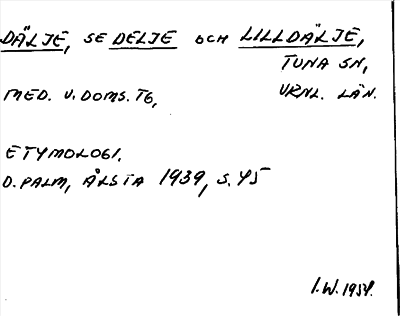 DÄLJE, SE DELJE OCH LILLDÄLJE,
TUNA SN,
MED. V. DOMS. TG, VRNL. LÄN.
ETYMOLOGI.
D. PALM, ÅLSTA 1939, S. 45
I.W. 1954.